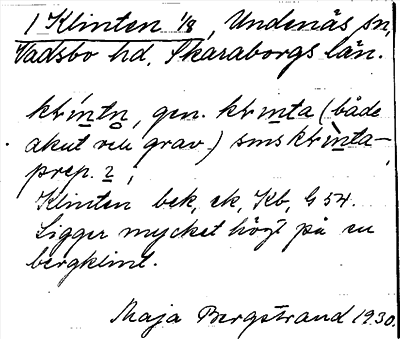 1 Klinten 1/8, Undenäs sn,
Vadsbo hd, Skaraborgs län.
klintn, gen. klinta (både
akut och grav.) sms klinta-
prep. 2,
Klinten bek, ek, Kb, G 54.
Ligger mycket högt på en
bergklint.
Maja Bergstrand 1930.